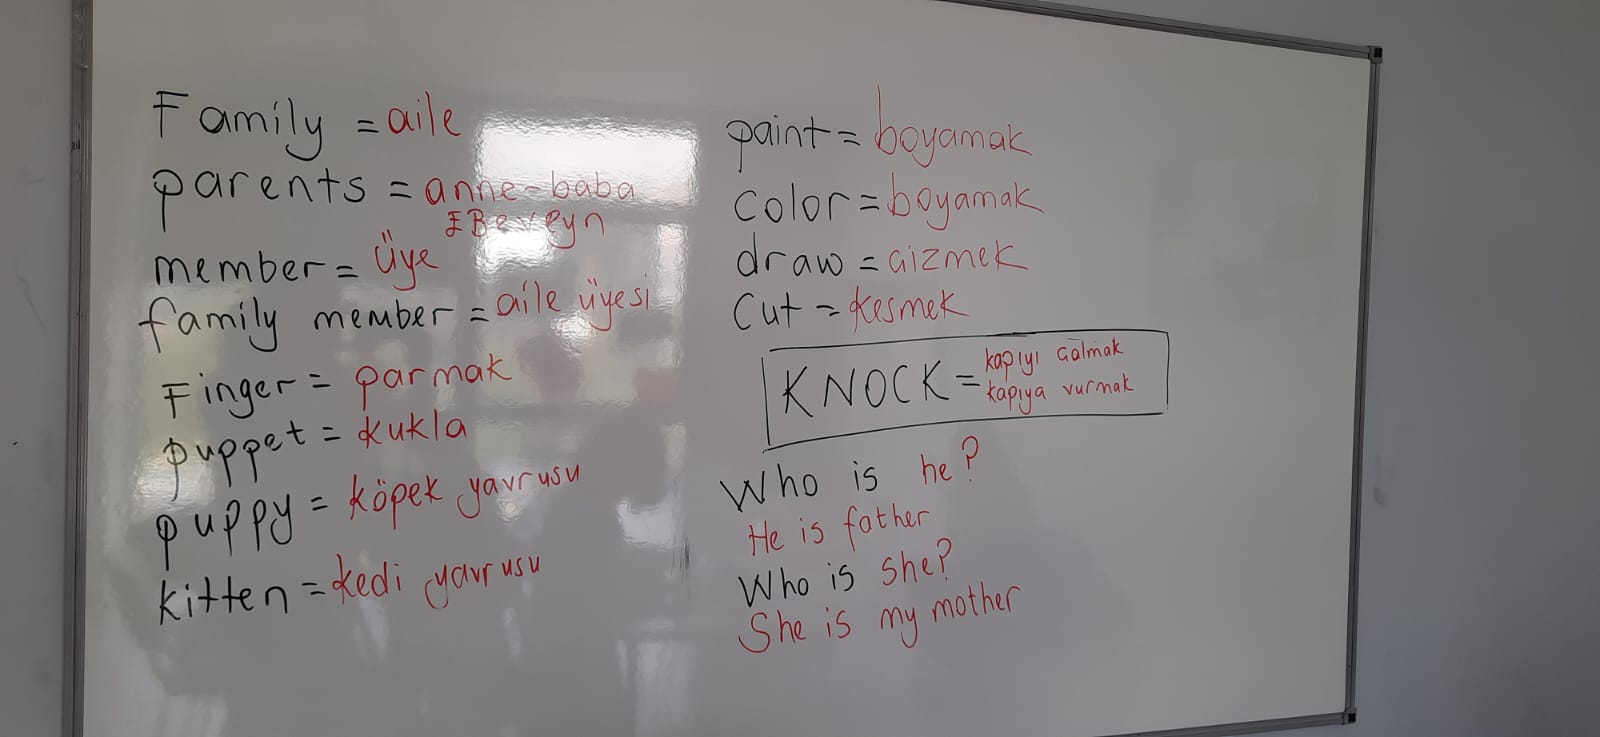 Family = aile
parents = anne-baba
EBeveyn
member = üye
family member = aile üyesi
Finger = parmak
puppet = kukla
puppy = köpek yavrusu
kitten = kedi yavrusu
paint = boyamak
color = boyamak
draw = çizmek
Cut = kesmek
KNOCK = kapıyı çalmak
kapıya vurmak
Who is he?
He is father
Who is she?
She is my mother